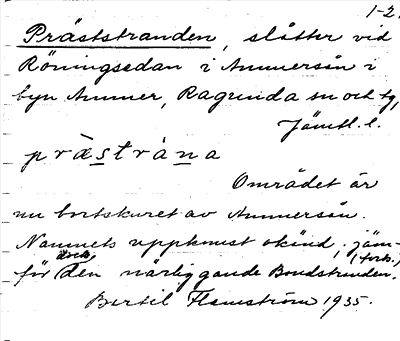 1-2.
Präststranden, slåtter vid
Röningsedan i Ammersån i
byn Ammer, Ragunda sn och tg,
Jämtl. l.
prästràna
Området är
nu bortskuret av Ammersån.
Namnets uppkomst okänd; jäm-
för dock den närliggande Bondstranden. (fork.)
Bertil Flemström 1935.